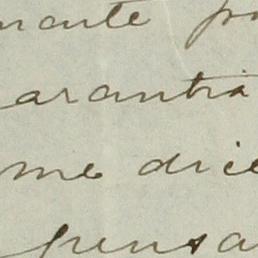 mante po
arantia
me dice
pensa